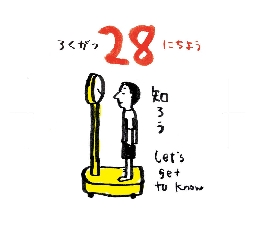 ろくがつ 28 にちよう
知ろう
Let's
get
to know